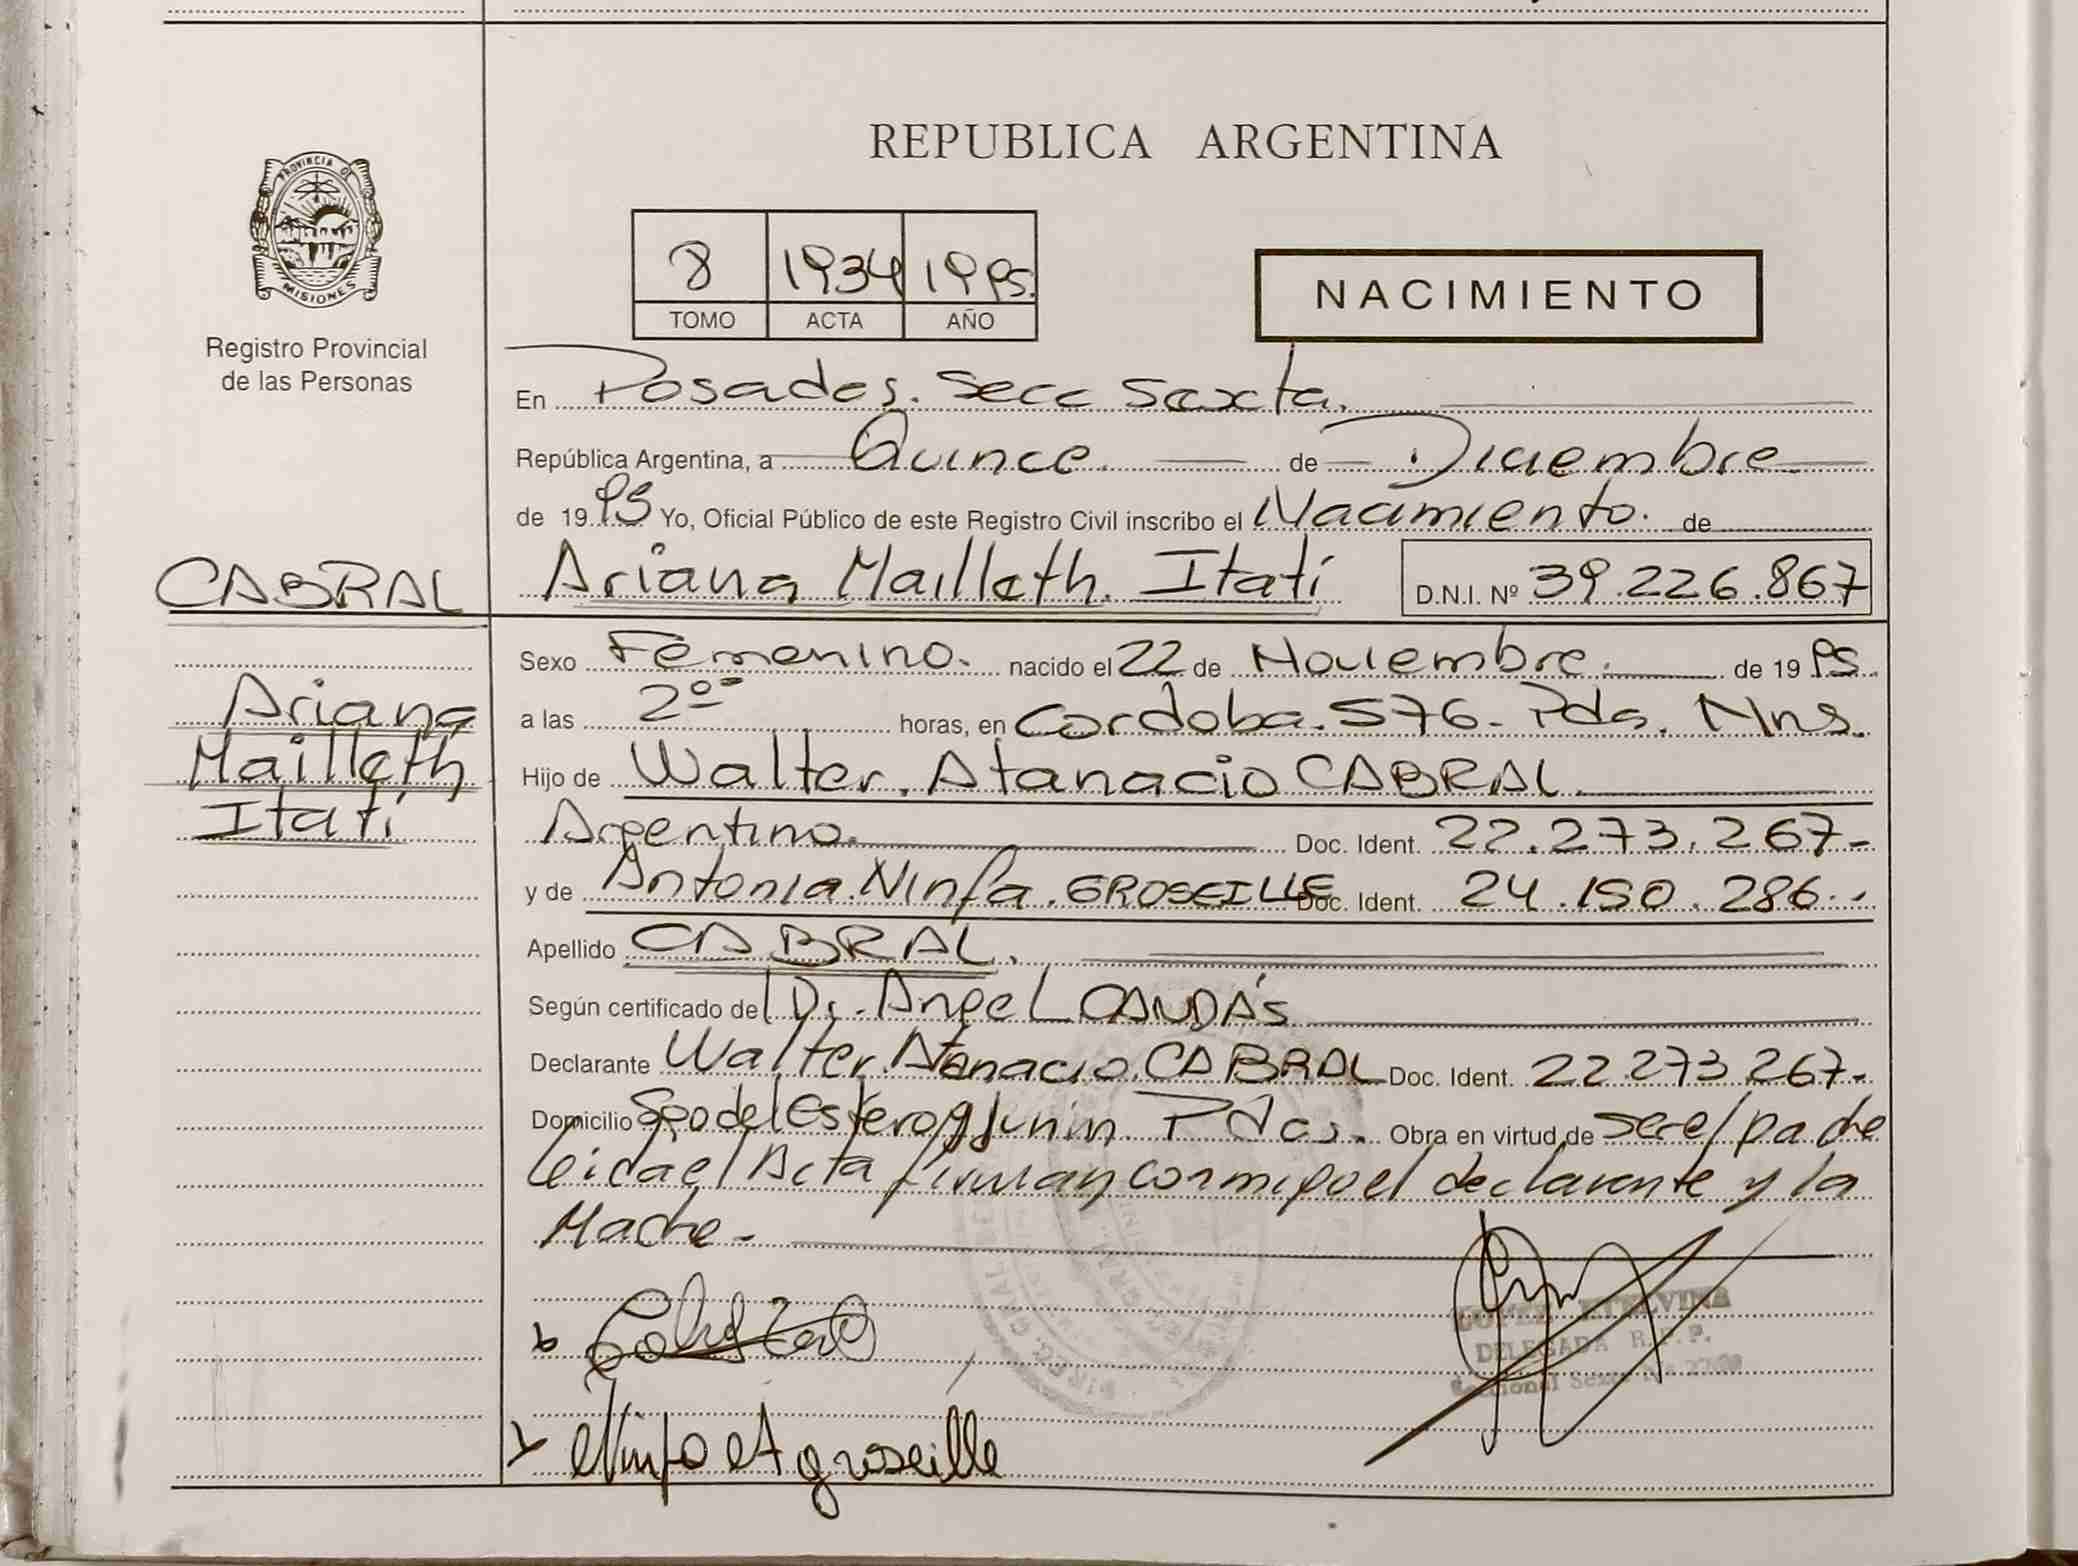 REPUBLICA ARGENTINA
PROVINCIA DE
MISIONES
Registro Provincial
de las Personas
8 1934 1995.
TOMO ACTA AÑO
NACIMIENTO
En Posadas. Secc Sexta.
República Argentina, a Quince. de Diciembre
de 1995 Yo, Oficial Público de este Registro Civil inscribo el Nacimiento. de
CABRAL
Ariana Mailleth. Itatí D.N.I. Nº 39.226.867
Sexo Femenino. nacido el 22 de Noviembre. de 1995.
Ariana
Mailleth
Itatí
a las 2º horas, en Cordoba. 576. Pdas. Mns.
Hijo de Walter. Atanacio CABRAL
Argentino. Doc. Ident. 22.273.267-
y de Antonia. Ninfa. GROSEILLE Doc. Ident. 24.150.286.
Apellido CABRAL.
Según certificado de Dr. Angel CANDÁS
Declarante Walter. Atanacio. CABRAL Doc. Ident. 22 273 267-
Domicilio Sgo del Estero y Junin. Pdas. Obra en virtud de ser el padre
leida el Acta firman conmigo el declarante y la
Madre-
ETELVINA
DELEGADA R.P.P.
Seccional Sexta
Ninfa A groseille